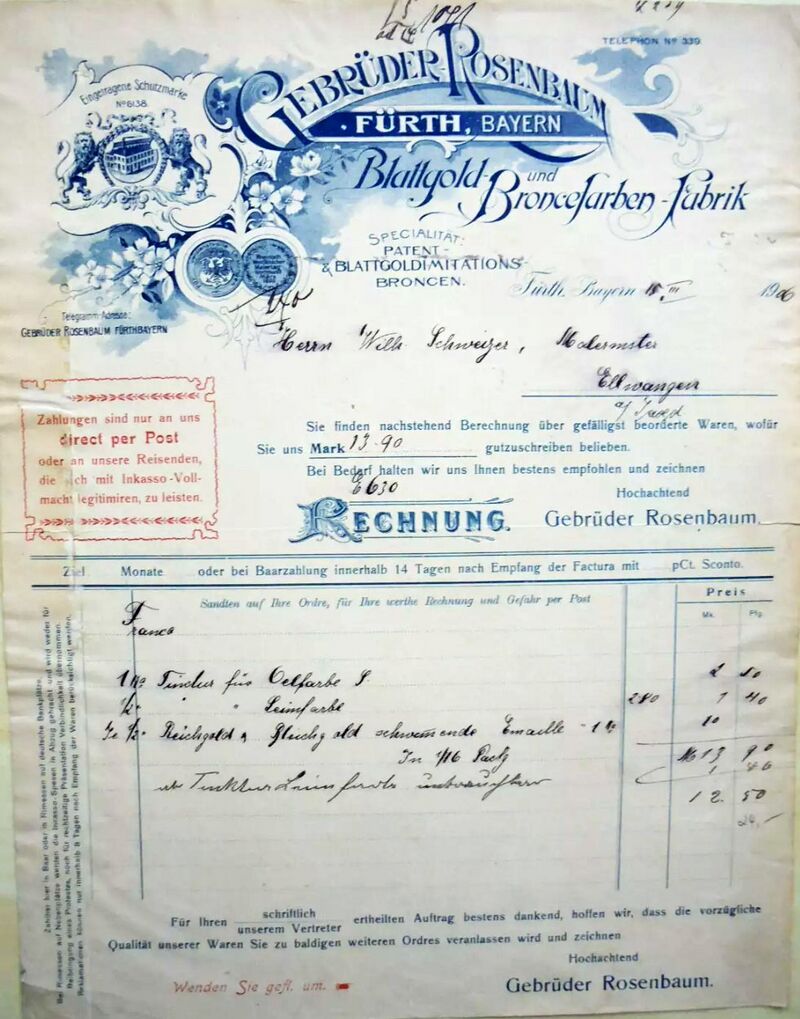 1041
TELEPHON No 339.
Eingetragene Schutzmarke
No 6138.
GEBRÜDER ROSENBAUM
FÜRTH, BAYERN
Blattgold- und Broncefarben-Fabrik
SPECIALITÄT:
PATENT-
& BLATTGOLDIMITATIONS-
BRONCEN.
Fürth, Bayern 15 III 1906
Telegramm-Adresse:
GEBRÜDER ROSENBAUM FÜRTHBAYERN
Herrn Wilh. Schweizer, Malermster
Ellwangen
a/ Jagst
Zahlungen sind nur an uns
direct per Post
oder an unsere Reisenden,
die sich mit Inkasso-Voll-
macht legitimiren, zu leisten.
Sie finden nachstehend Berechnung über gefälligst beorderte Waren, wofür
Sie uns Mark 13.90 gutzuschreiben belieben.
Bei Bedarf halten wir uns Ihnen bestens empfohlen und zeichnen
E630
Hochachtend
RECHNUNG.
Gebrüder Rosenbaum.
Ziel Monate oder bei Baarzahlung innerhalb 14 Tagen nach Empfang der Factura mit pCt. Sconto.
Sandten auf Ihre Ordre, für Ihre werthe Rechnung und Gefahr per Post
Preis
Mk. Pfg.
Franco
1 Ko Tinctur für Oelfarbe S. 2 50
1/2 " " Leimfarbe 280 1 40
Je 1/2 " Reichgold & Gleichgold schwemende Emaille - 1 K 10
In 1/16 Pack M 13 90
1 40
ab Tinktur Leimfarbe unbrauchbar
12 50
Zahlbar hier in Baar oder in Rimessen auf deutsche Bankplätze.
Bei Rimessen auf Nebenplätze werden die Inkasso-Spesen in Abzug gebracht und wird weder für
Beibringung eines Protestes, noch für rechtzeitige Präsentation Verbindlichkeit übernommen.
Reklamationen können nur innerhalb 8 Tagen nach Empfang der Waren berücksichtigt werden.
Für Ihren schriftlich
unserem Vertreter ertheilten Auftrag bestens dankend, hoffen wir, dass die vorzügliche
Qualität unserer Waren Sie zu baldigen weiteren Ordres veranlassen wird und zeichnen
Hochachtend
Wenden Sie gefl. um.
Gebrüder Rosenbaum.